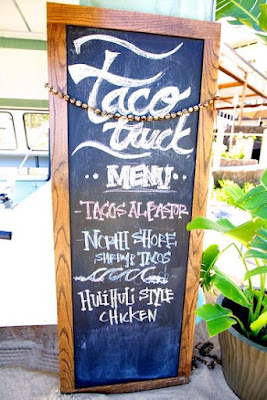 Taco
truck
MENU
- TACOS AL PASTOR
- NORTH SHORE
SHRIMP TACOS
HULIHULI STYLE
CHICKEN